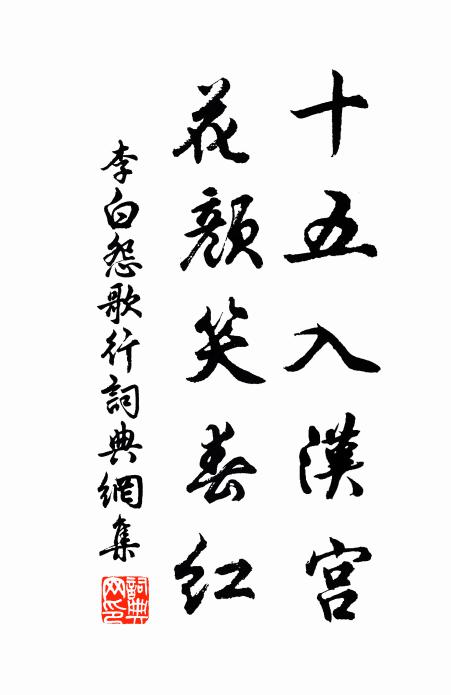 十五入漢宮
花顏笑春紅
李白怨歌行詞典網集
詞典
网印